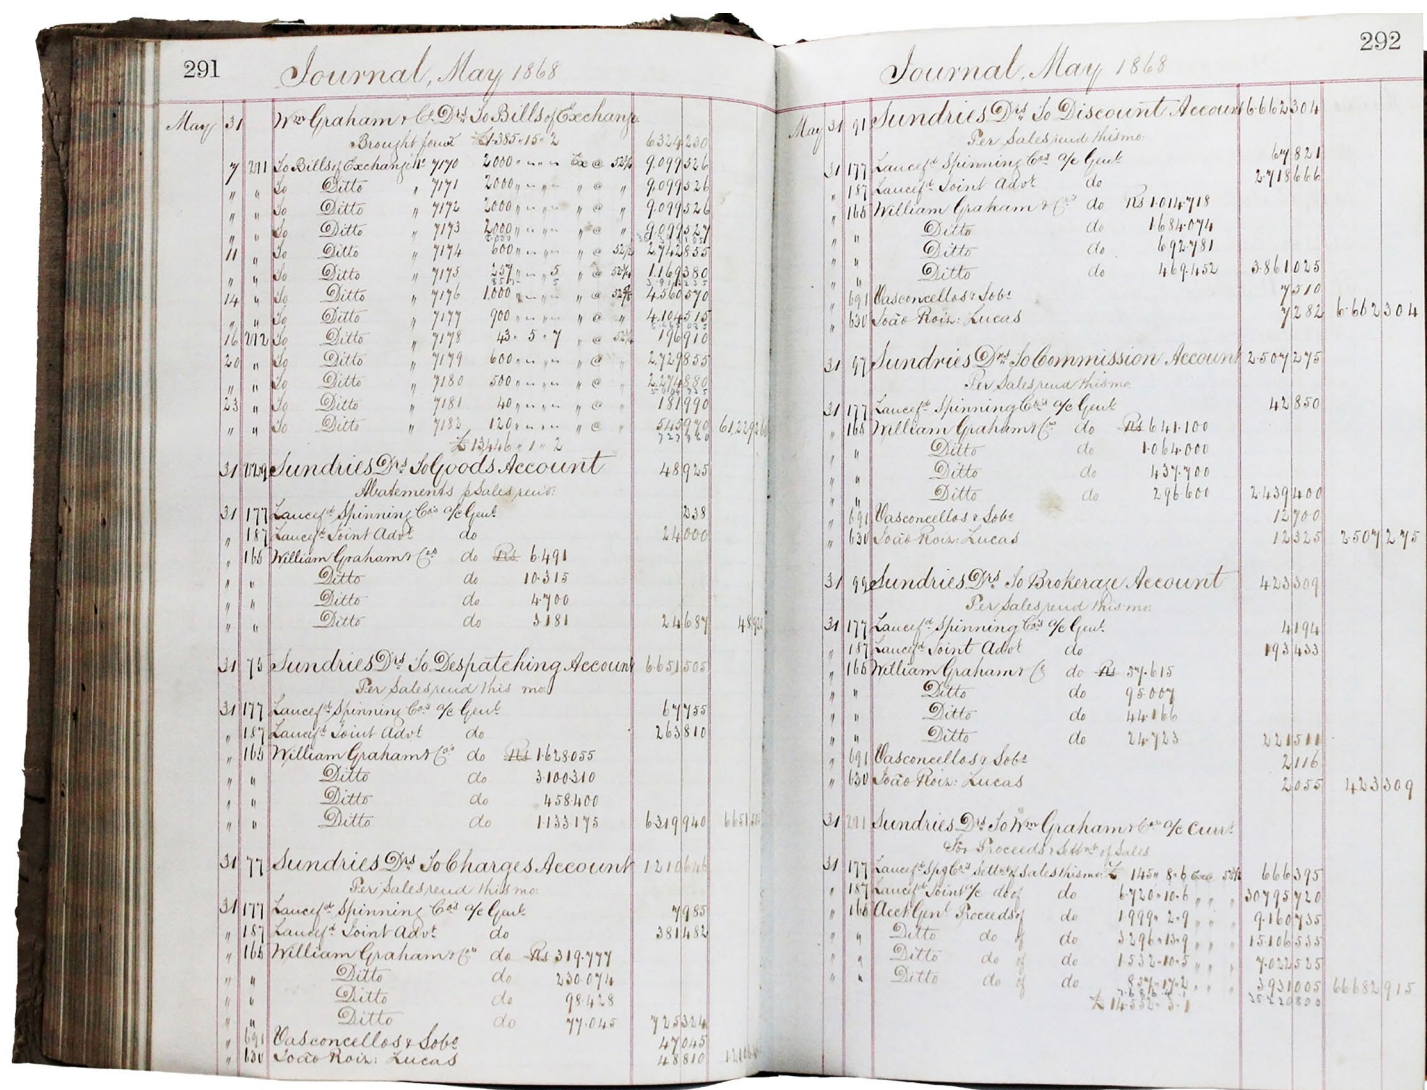 291
Journal, May 1868
May 31 Wm Graham & Co Drs To Bills of Exchange
Brought forwd £1385.15.2 6324230
7 211 To Bills of Exchange No 7170 2000 " " " Ex @ 52¾ 9.099526
" " To Ditto " 7171 2000 " " " " @ " 9.099526
" " To Ditto " 7172 2000 " " " " @ " 9.099526
" " To Ditto " 7173 2000 " " " " @ " 9.099527
11 " To Ditto " 7174 600 " " " " @ 2742855
" " To Ditto " 7175 257 " " 5 " @ 52¾ 1.169380
14 " To Ditto " 7176 1.000 " " " " @ 4560570
" " To Ditto " 7177 900 " " " " @ " 4.104515
16 212 To Ditto " 7178 43.5.7 " @ 196910
20 " To Ditto " 7179 600 " " " " @ " 2.729855
" " To Ditto " 7180 500 " " " " @ " 2.274880
23 " To Ditto " 7181 40 " " " " @ " 181990
" " To Ditto " 7182 120 " " " " @ " 545970
£13446.1.2 727960
31 Sundries Drs To Goods Account 48925
Abatements p Sales rend:
31 177 Lancefd Spinning Cos a/c Genl 238
" 187 Lancefd Joint Advt do 24000
" 165 William Graham & Cos do Rs 6.491
" " Ditto do 10.315
" " Ditto do 4.700
" " Ditto do 3.181 24687 48925
31 75 Sundries Drs To Despatching Account 6.651505
Per Sales rend this mo.
31 177 Lancefd Spinning Cos a/c Genl 67755
" 187 Lancefd Joint Advt do 263810
" 165 William Graham & Cos do Rs 1.628.055
" " Ditto do 3.100.310
" " Ditto do 458.400
" " Ditto do 1.133.175 6319940 6651505
31 77 Sundries Drs To Charges Account 1210646
Per Sales rend this mo:
31 177 Lancefd Spinning Cos a/c Genl 7985
" 187 Lancefd Joint Advt do 381482
" 165 William Graham & Cos do Rs 319.777
" " Ditto do 230.074
" " Ditto do 98.428
" " Ditto do 77.045 725324
" 691 Vasconcellos & Sobo 47045
" 630 João Roiz: Lucas 48810
292
Journal, May 1868
May 31 91 Sundries Drs To Discount Account 6.662304
Per Sales rend this mo:
31 177 Lancefd Spinning Cos a/c Genl 67821
" 187 Lancefd Joint Advt do 2.718666
" 165 William Graham & Cos do Rs 1.014.718
" " Ditto do 1.684.074
" " Ditto do 692.781
" " Ditto do 469.452 3.861025
" 691 Vasconcellos & Sobo 7510
" 630 João Roiz: Lucas 7282 6.662304
31 97 Sundries Drs To Commission Account 2.507275
Per Sales rend this mo
31 177 Lancefd Spinning Cos a/c Genl 42850
" 165 William Graham & Co do Rs 641.100
" " Ditto do 1.064.000
" " Ditto do 437.700
" " Ditto do 296.600 2.439400
" 691 Vasconcellos & Sobo 12700
" 630 João Roiz: Lucas 12325 2507275
31 99 Sundries Drs To Brokerage Account 423309
Per Sales rend this mo:
31 177 Lancefd Spinning Cos a/c Genl. 4194
" 187 Lancefd Joint Advt do 193433
" 165 William Graham & Co do Rs 57.615
" " Ditto do 95.007
" " Ditto do 44.166
" " Ditto do 24.723 221511
" 691 Vasconcellos & Sobo 2116
" 630 João Roiz: Lucas 2055 423309
31 211 Sundries Drs To Wm Graham & Cos a/c Currt
For Proceeds & Settmt of Sales
31 177 Lancefd Spg Cos Settt of Sales this mo £ 145.8.6 Ex @ 666395
" 187 Lancefd Joint a/c do of do 6.720.10.6 " " " 30795720
" 165 Acct Genl Proceeds of do 1999.2.9 " " " 9.160735
" " Ditto do of do 3296.13.9 " " " 15.106535
" " Ditto do of do 1.532.10.5 " " " 7.022525
" " Ditto do of do 857.17.2 " " " 3931005 66682915
£14.552.3.1